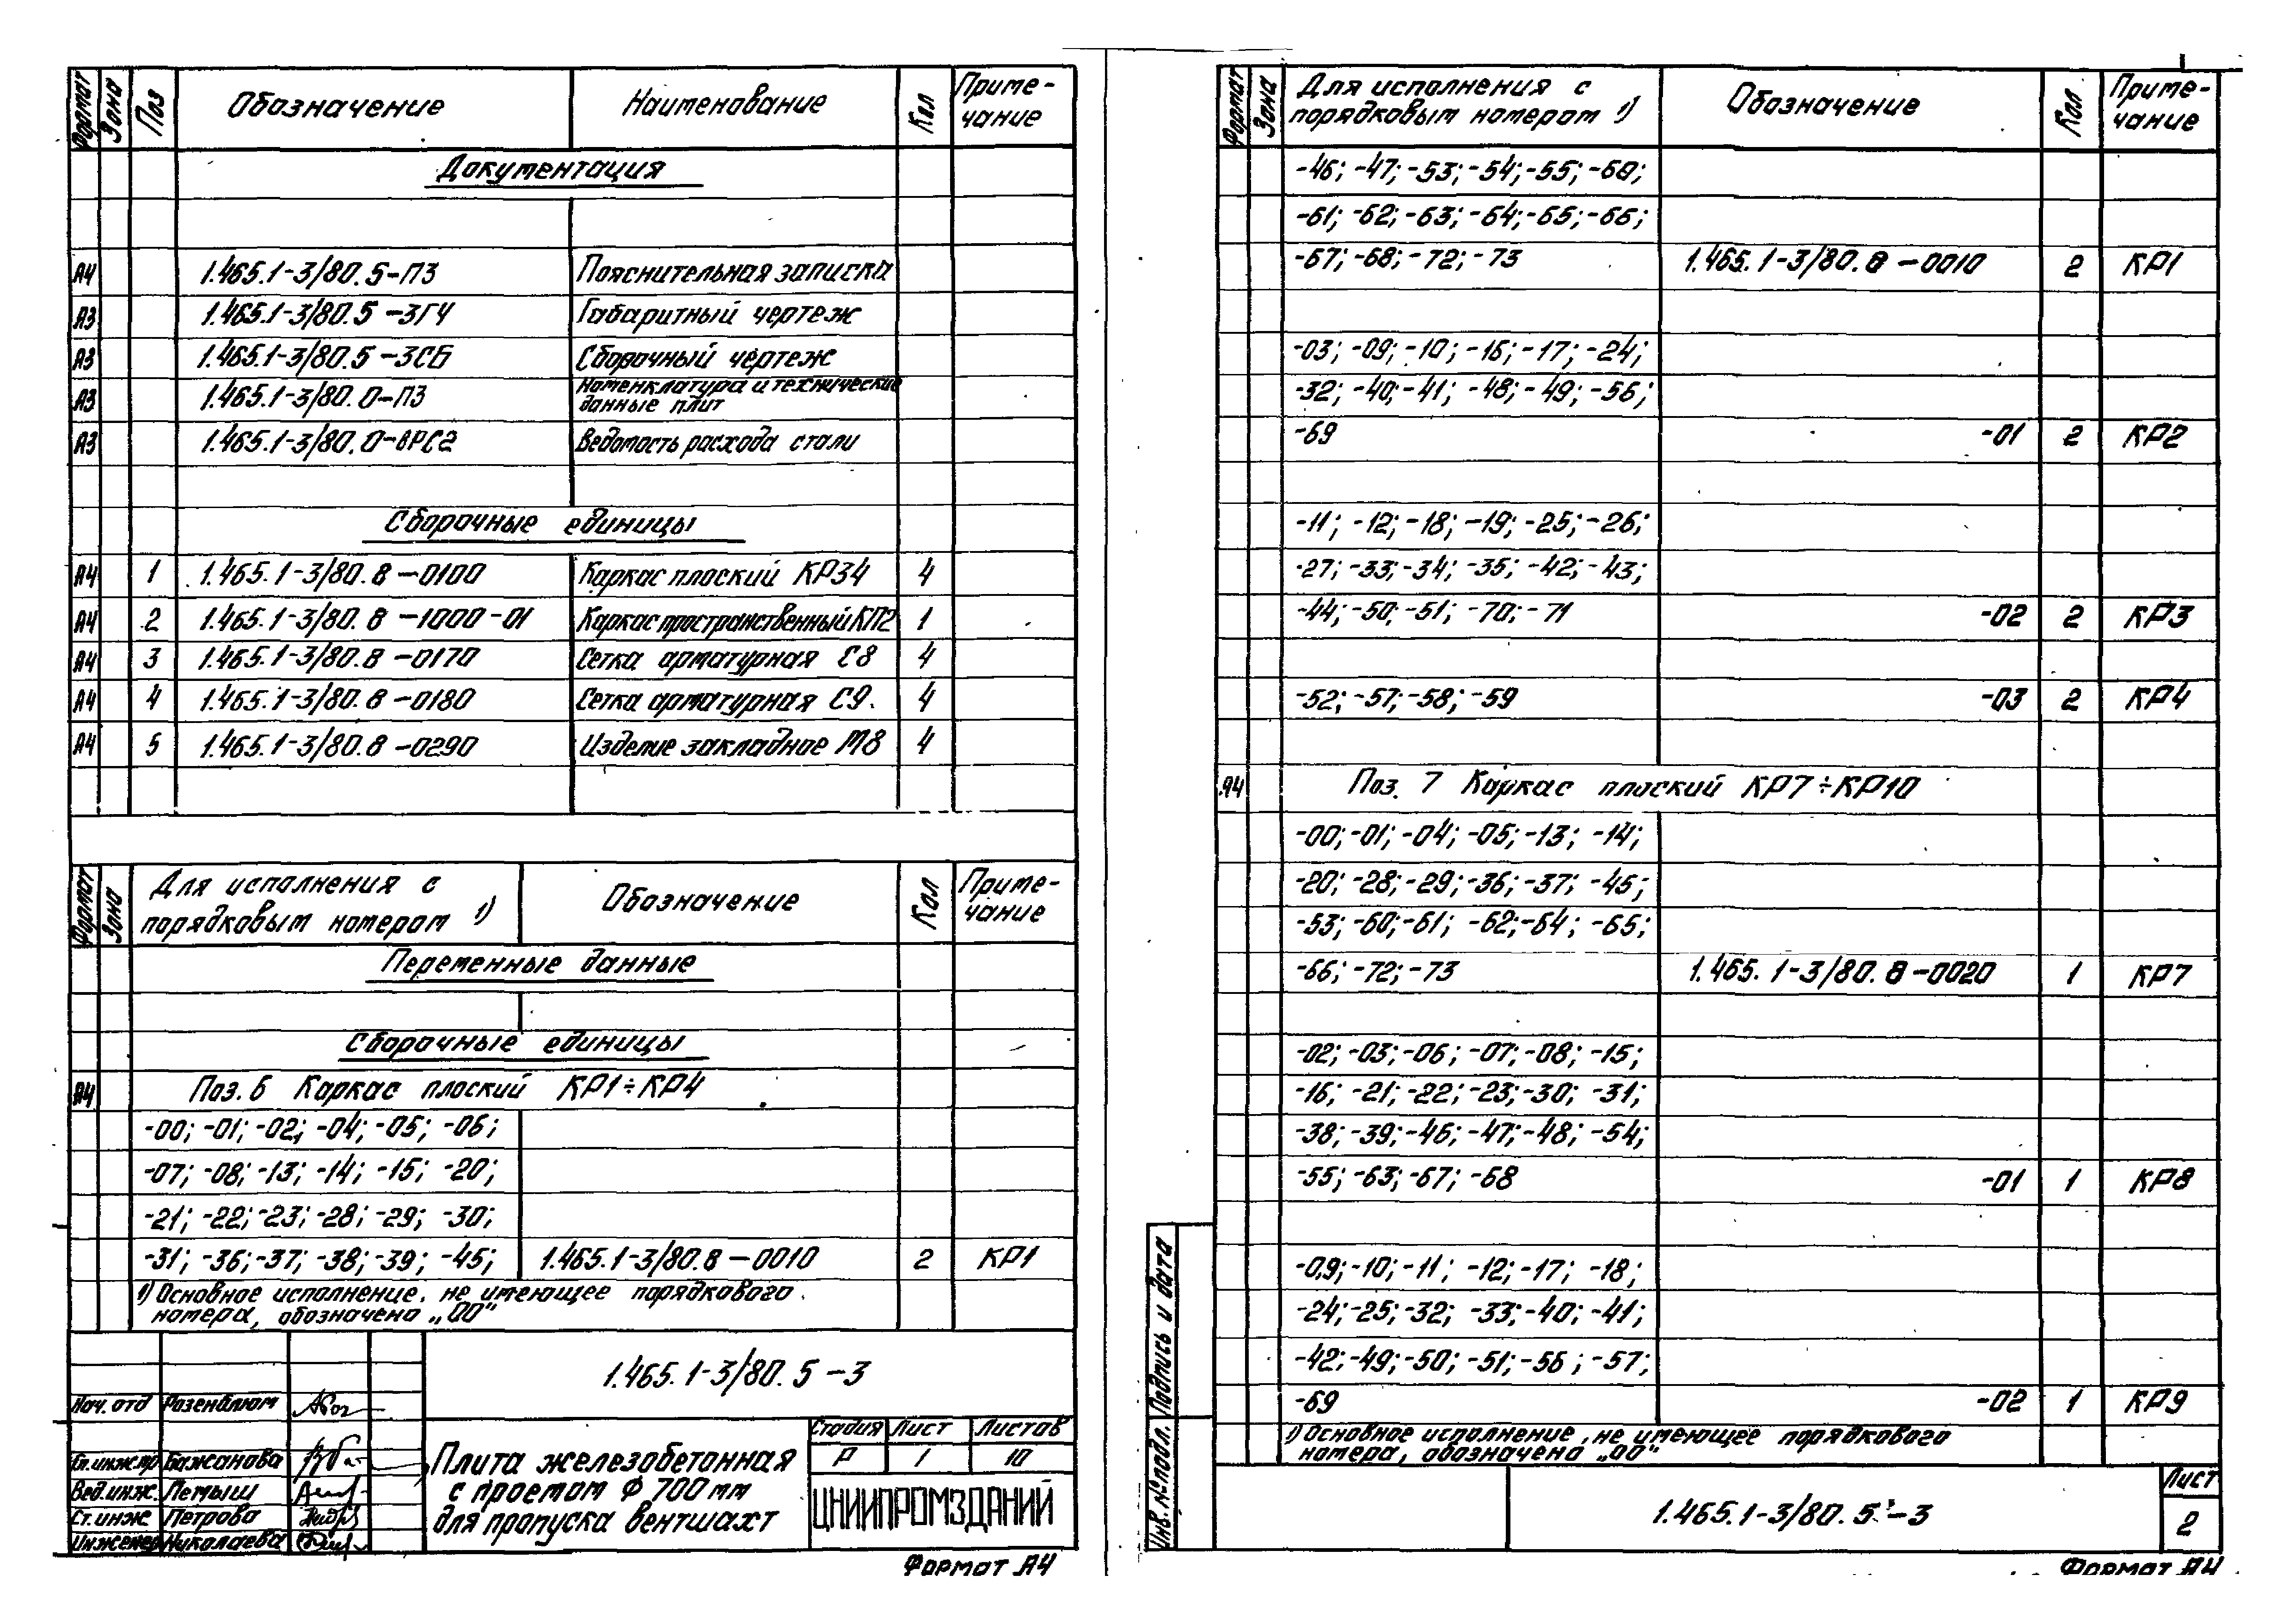 Формат Зона Поз Обозначение Наименование Кол Приме-
чание
Документация
А4 1.465.1-3/80.5-ПЗ Пояснительная записка
А3 1.465.1-3/80.5-3ГЧ Габаритный чертеж
А3 1.465.1-3/80.5-3СБ Сборочный чертеж
А3 1.465.1-3/80.0-ПЗ Номенклатура и технические
данные плит
А3 1.465.1-3/80.0-ВРС2 Ведомость расхода стали
Сборочные единицы
А4 1 1.465.1-3/80.8-0100 Каркас плоский КР34 4
А4 2 1.465.1-3/80.8-1000-01 Каркас пространственный КП2 1
А4 3 1.465.1-3/80.8-0170 Сетка арматурная С8 4
А4 4 1.465.1-3/80.8-0180 Сетка арматурная С9. 4
А4 5 1.465.1-3/80.8-0290 Изделие закладное М8 4
Формат Зона Для исполнения с
порядковым номером 1) Обозначение Кол Приме-
чание
Переменные данные
Сборочные единицы
А4 Поз. 6 Каркас плоский КР1÷КР4
-00; -01; -02; -04; -05; -06;
-07; -08; -13; -14; -15; -20;
-21; -22; -23; -28; -29; -30;
-31; -36; -37; -38; -39; -45; 1.465.1-3/80.8-0010 2 КР1
1) Основное исполнение, не имеющее порядкового
номера, обозначено „00"
1.465.1-3/80.5-3
Нач. отд Розенблюм
Бажанова
Вед.инж. Лемыш
Ст.инж Петрова
Инженер Николаева
Плита железобетонная
с проемом Ф 700 мм
для пропуска вентшахт
Стадия Лист Листов
Р 1 10
ЦНИИПРОМЗДАНИЙ
Формат А4
Формат Зона Для исполнения с
порядковым номером 1) Обозначение Кол Приме-
чание
-46; -47; -53; -54; -55; -60;
-61; -62; -63; -64; -65; -66;
-67; -68; -72; -73 1.465.1-3/80.8-0010 2 КР1
-03; -09; -10; -16; -17; -24;
-32; -40; -41; -48; -49; -56;
-69 -01 2 КР2
-11; -12; -18; -19; -25; -26;
-27; -33; -34; -35; -42; -43;
-44; -50; -51; -70; -71 -02 2 КР3
-52; -57; -58; -59 -03 2 КР4
А4 Поз. 7 Каркас плоский КР7÷КР10
-00; -01; -04; -05; -13; -14;
-20; -28; -29; -36; -37; -45;
-53; -60; -61; -62; -64; -65;
-66; -72; -73 1.465.1-3/80.8-0020 1 КР7
-02; -03; -06; -07; -08; -15;
-16; -21; -22; -23; -30; -31;
-38; -39; -46; -47; -48; -54;
-55; -63; -67; -68 -01 1 КР8
-09; -10; -11; -12; -17; -18;
-24; -25; -32; -33; -40; -41;
-42; -49; -50; -51; -56; -57;
-69 -02 1 КР9
1) Основное исполнение, не имеющее порядкового
номера, обозначено „00"
Инв. № подл. Подпись и дата
1.465.1-3/80.5-3
Лист
2
Формат А4